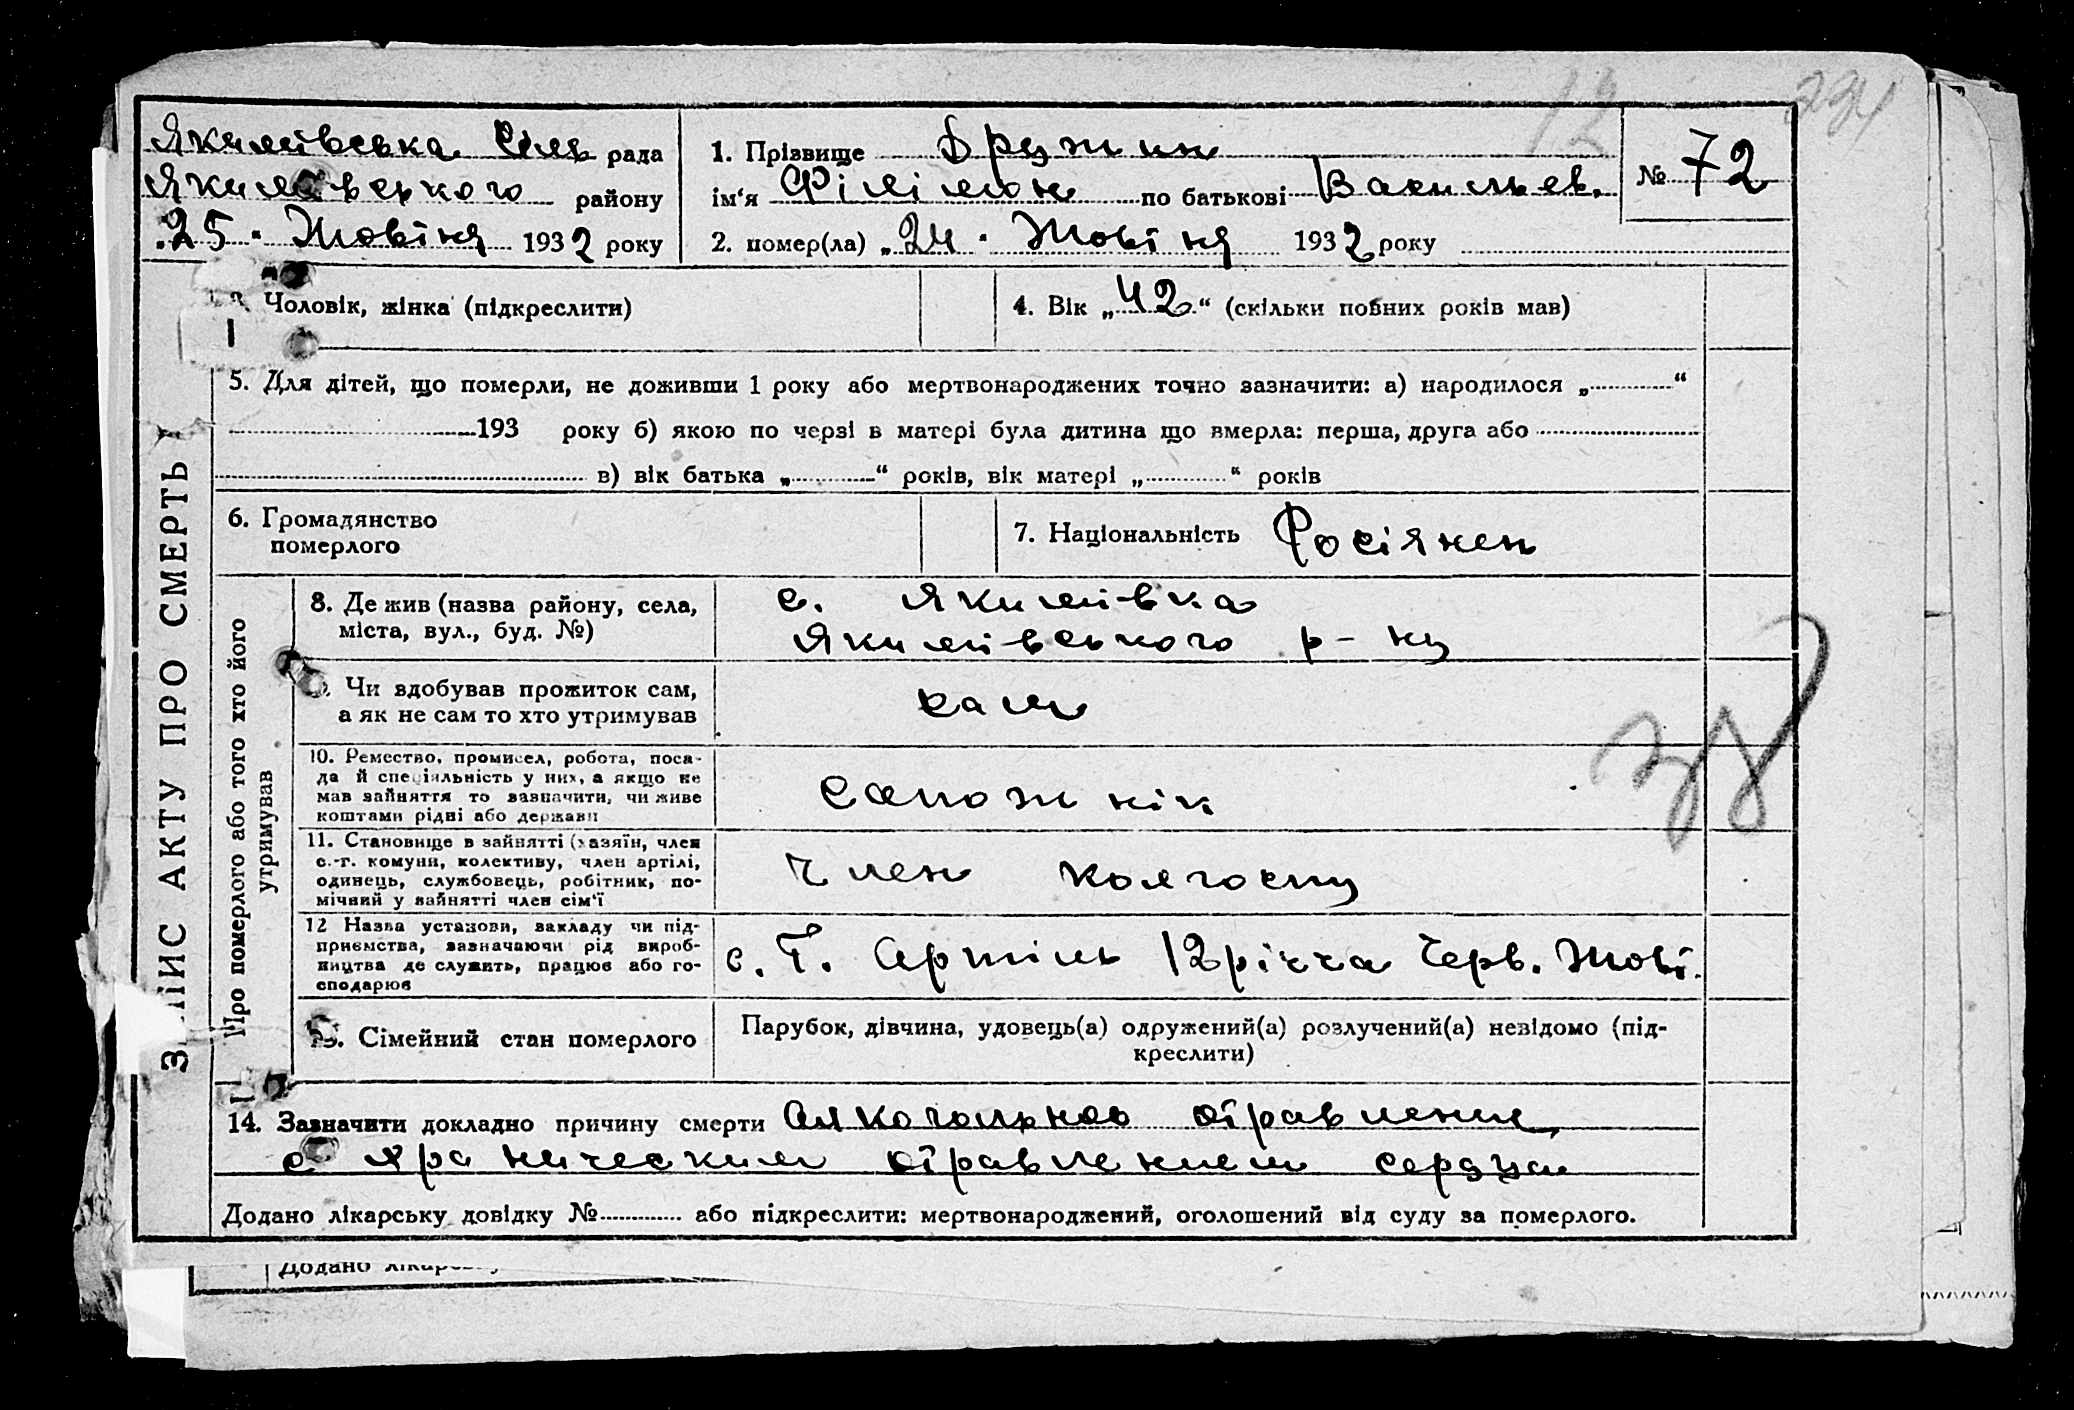 12 294
Якимівська Сіль рада
Якимівського району
„25“ Жовтня 1932 року
1. Прізвище Дружин
ім‘я Філімон по батькові Васильев.
№ 72
2. помер(ла) „24“ Жовтня 1932 року
3. Чоловік, жінка (підкреслити)
4. Вік „42“ (скільки повних років мав)
5. Для дітей, що померли, не доживши 1 року або мертвонароджених точно зазначити: а) народилося „ “
193 року б) якою по черзі в матері була дитина що вмерла: перша, друга або
в) вік батька „ “ років, вік матері „ “ років
6. Громадянство
померлого
7. Національність Росіянен
ЗАПИС АКТУ ПРО СМЕРТЬ
Про померлого або того хто його
утримував
8. Де жив (назва району, села,
міста, вул., буд. №)
с. Якимівка
Якимівського р-ну
9. Чи вдобував прожиток сам,
а як не сам то хто утримував
сам
10. Ремество, промисел, робота, поса-
да й спеціяльність у них, а якщо не
мав зайняття то зазначити, чи живе
коштами рідні або держави
сапожнік
11. Становище в зайнятті (хазяїн, член
с.-г. комуни, колективу, член артілі,
одинець, службовець, робітник, по-
мічний у зайнятті член сім‘ї
Член колгоспу
12 Назва установи, закладу чи під-
приємства, зазначаючи рід вироб-
ництва де служить, працює або го-
сподарює
с. Г. Артіль 12 річча Черв. Жовт.
13. Сімейний стан померлого
Парубок, дівчина, удовець(а) одружений(а) розлучений(а) невідомо (під-
креслити)
14. Зазначити докладно причину смерти Алкогольное отравление
с хроническим отравлением сердца
Додано лікарську довідку № або підкреслити: мертвонароджений, оголошений від суду за померлого.
Додано